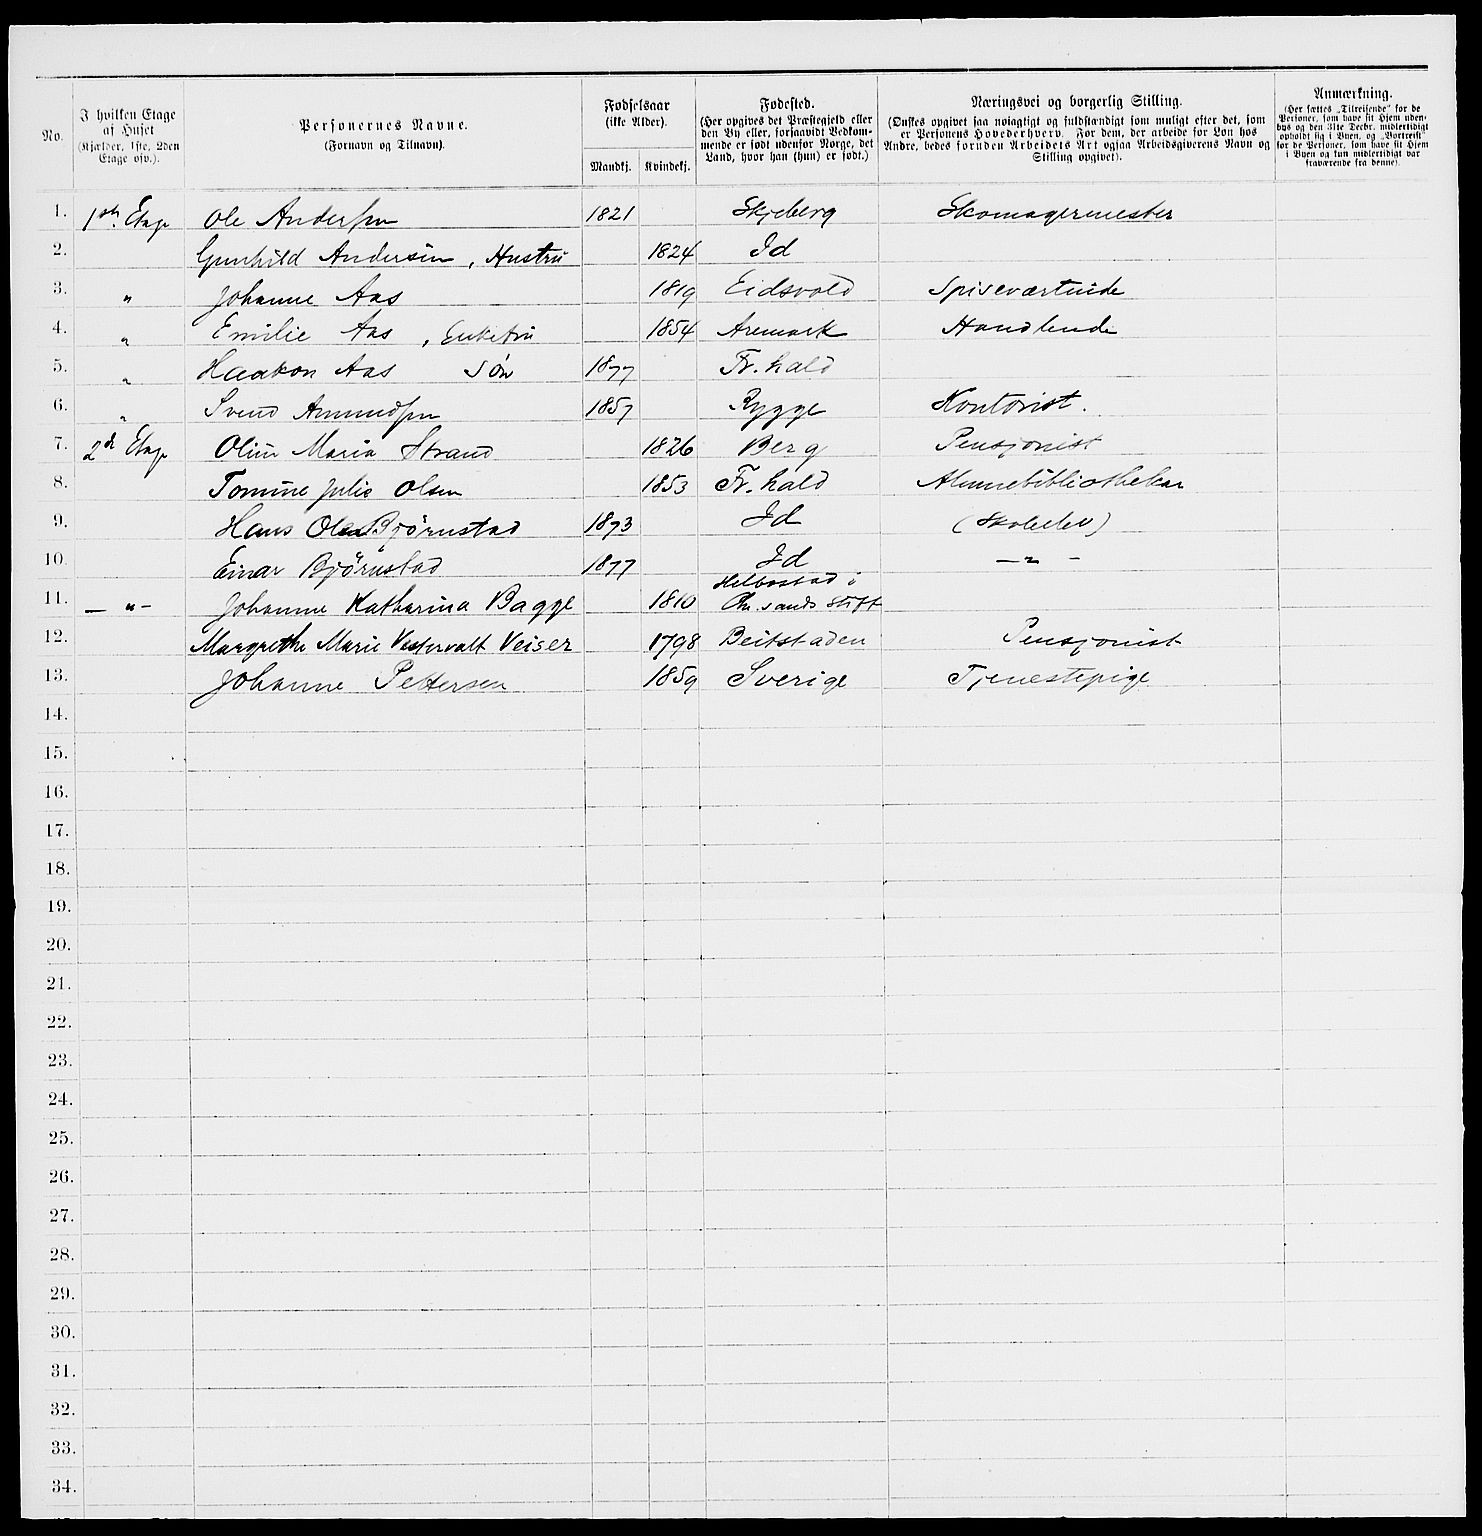 No.
I hvilken Etage af Huset (Kjælder, 1ste, 2den Etage osv.).
Personernes Navne. (Fornavn og Tilnavn).
Fødselsaar (ikke Alder).
Mandkj. Kvindekj.
Fødested. (Her opgives det Præstegjeld eller den By eller, forsaavidt Vedkommende er født udenfor Norge, det Land, hvor han (hun) er født.)
Næringsvei og borgerlig Stilling. (Ønskes opgivet saa nøiagtigt og fuldstændigt som muligt efter det, som er Personens Hovederhverv. For dem, der arbeide for Løn hos Andre, bedes foruden Arbeidets Art ogsaa Arbeidsgiverens Navn og Stilling opgivet).
Anmærkning. (Her sættes „Tilreisende" for de Personer, som have sit Hjem udenbys og den 31te Decbr. midlertidigt opholdt sig i Byen, og „Bortreist" for de Personer, som have sit Hjem i Byen og kun midlertidigt var fraværende fra denne).
1. 1ste Etage Ole Anderssen 1821 Skjeberg Skomagermester
2. Gunhild Andersen, Hustru 1824 Id
3. " Johanne Aas 1819 Eidsvold Spiseværtinde
4. " Emilie Aas, Enkefru 1854 Aremark Handlende
5. " Haakon Aas Søn 1877 Fr. hald
6. " Svend Amundsen 1857 Rygge Kontorist.
7. 2den Etage Maria Strand 1826 Berg Pensjonist
8. Tomine Julie Olsen 1853 Fr. hald Almuebibliothekar
9. Hans Olea Bjørnstad 1873 Id (Skoleelev)
10. Einar Bjørnstad 1877 Id — " —
11. — " — Johanne Katharina Bagge 1810 i Chr.sands Stift
12. Margrethe Marie Vestervalt Veiser 1798 Beitstaden Pensjonist
13. Johanne Pettersen 1859 Sverige Tjenestepige
14.
15.
16.
17.
18.
19.
20.
21.
22.
23.
24.
25.
26.
27.
28.
29.
30.
31.
32.
33.
34.